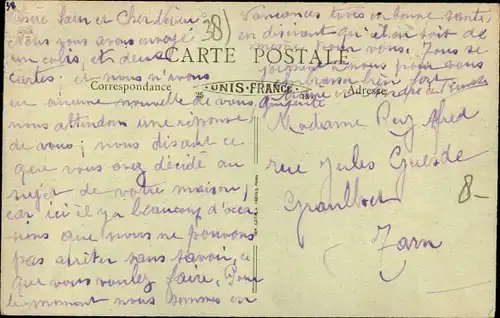 38
38)
CARTE POSTALE
Correspondance
UNIS-FRANCE
Adresse
et Cher
Nous vous avons envoyé
un colis, et deux
cartes; et nous n'avons
eu aucune nouvelle de vous
nous attendons une réponse
de vous; nous disant ce
que vous avez décidé au
sujet de votre maison;
car ici il y a beaucoup d'occa
sions que nous ne pouvons
pas arrêter sans savoir, ce
que vous voulez faire. Pour
le moment nous sommes en
vacances tous en bonne santé
en disant qu'il en soit de
même pour vous. Tous se
joignent à nous pour vous
embrasser bien fort
Madame Alfred
rue Jules Guesde
Graulhet
Tarn
8-